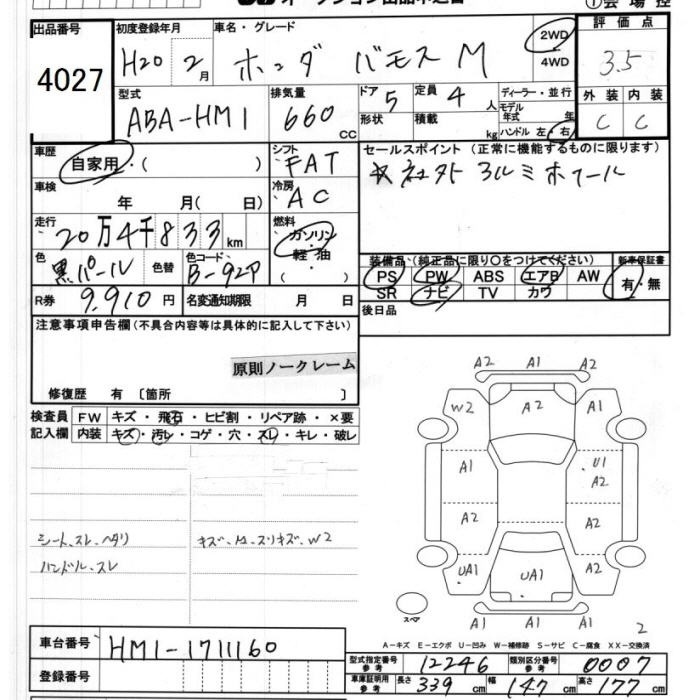 ①会場控
出品番号
4027
初度登録年月
H20 2月
車名・グレード
ホンダ バモス M
2WD
4WD
評価点
3.5
外装 内装
C C
型式
ABA-HM1
排気量
660 cc
ドア 5
定員 4 人
形状 積載 kg
ディーラー・並行
モデル年式 年
ハンドル 左・右
車歴
自家用・( )
シフト
FAT
車検
年 月( 日)
冷房
AC
セールスポイント (正常に機能するものに限ります)
社外 アルミホイール
走行
20万4千833km
燃料
ガソリン・
軽油・
( )
色
黒パール
色替
色コード
B-92P
R券 9,910円
名変通知期限 月 日
装備品(純正品に限り○をつけてください)
新車保証書
PS PW ABS エアB AW
SR ナビ TV カワ
有・無
後日品
注意事項申告欄(不具合内容等は具体的に記入して下さい)
原則ノークレーム
修復歴 有〔箇所 〕
検査員
記入欄
FW キズ・飛石・ヒビ割・リペア跡・×要
内装 キズ・汚レ・コゲ・穴・スレ・キレ・破レ
シート、スレ、ヘタリ
ハンドル、スレ
キズ・A2・スリキズ、W2
A2 A1 A2
W2 A2 A1
A1 U1 A2
A2 A2
UA1 UA1 A2
A1 A1 A1
スペア
2
A-キズ E-エクボ U-凹み W-補修跡 S-サビ C-腐食 XX-交換済
車台番号
HM1-1711160
登録番号
型式指定番号 参考 12246
類別区分番号 参考 0007
車庫証明用 参考
長さ 339cm 幅 147cm 高さ 177cm